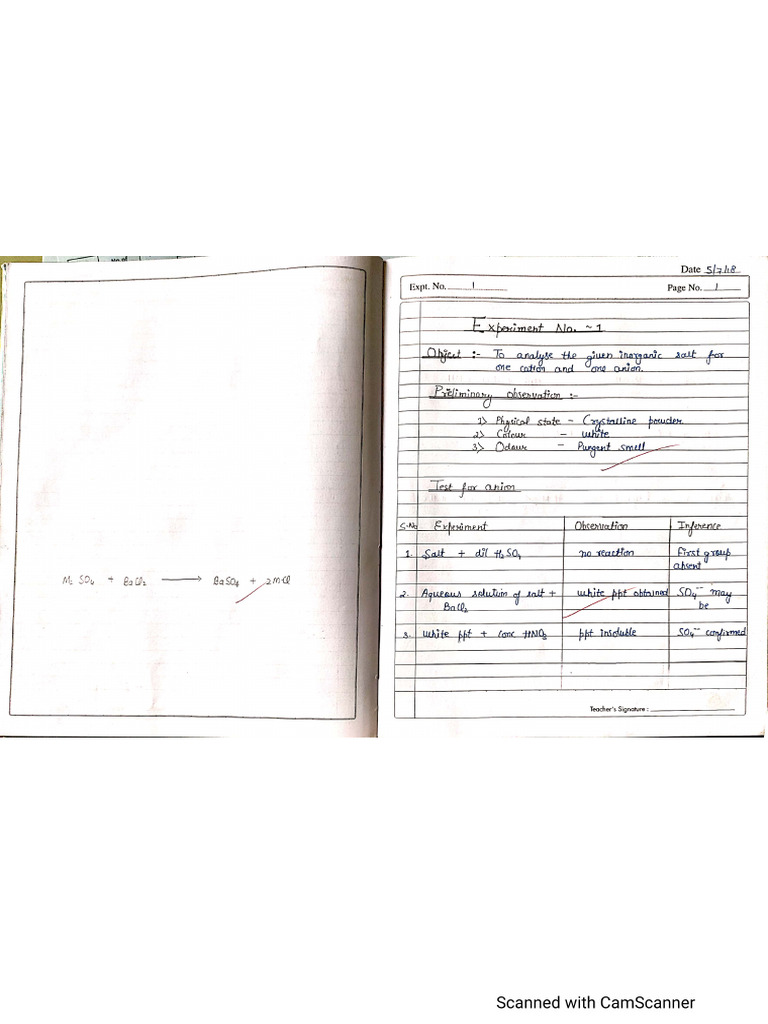 No. of
M₂ SO₄ + BaCl₂ ⟶ BaSO₄ + 2MCl
Date 5/7/18
Expt. No. 1
Page No. 1
Experiment No. ~ 1
Object :- To analyse the given inorganic salt for
one cation and one anion.
Preliminary observation :-
1) Physical state - Crystalline powder
2) Colour - white
3) Odour - Pungent smell
Test for anion
S.No Experiment Observation Inference
1. Salt + dil H₂SO₄ no reaction First group
absent
2. Aqueous solution of salt + white ppt obtained SO₄⁻⁻ may
BaCl₂ be
3. White ppt + Conc HNO₃ ppt insoluble SO₄⁻⁻ confirmed
Teacher's Signature :
Scanned with CamScanner